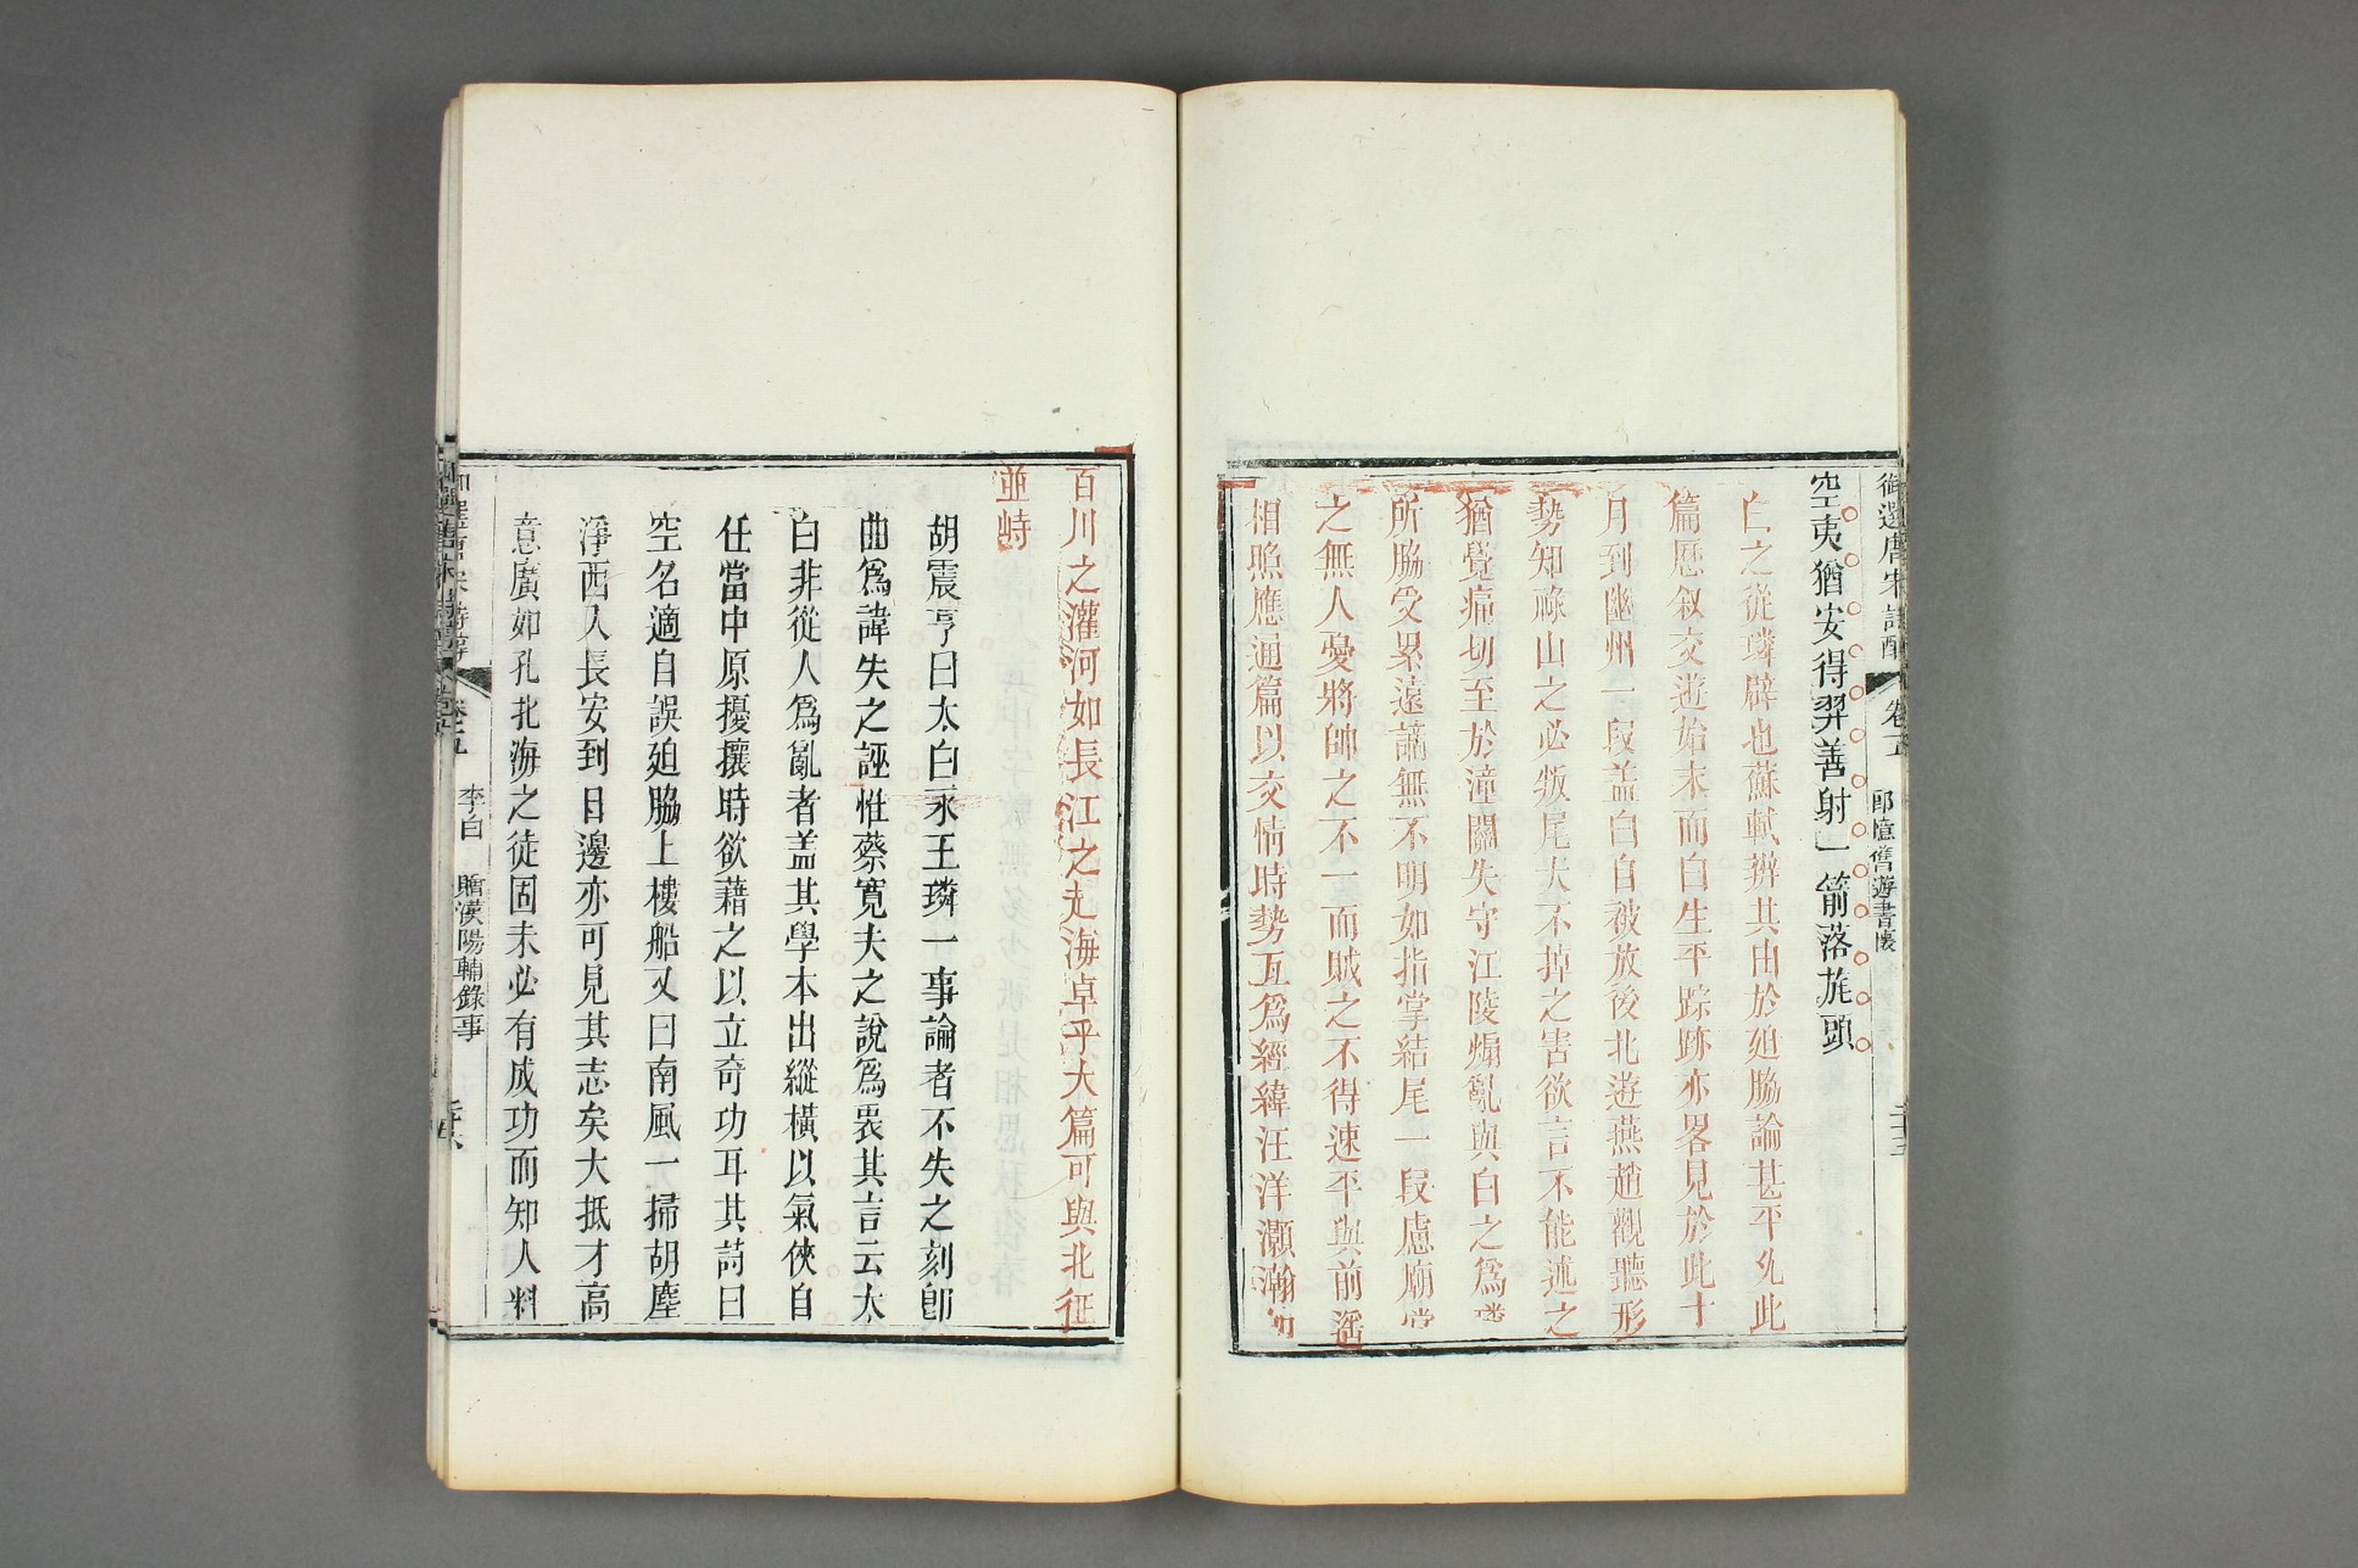 御選唐宋詩醇 卷五
郎憶舊遊書懷
空夷猶安得羿善射一箭落旄頭
白之從璘辟也蘇軾辨其由於廹脇論甚平允此
篇歷叙交遊始末而白生平踪跡亦畧見於此十
月到幽州一段盖白自被放後北遊燕趙觀聽形
勢知祿山之必叛尾大不掉之害欲言不能述之
猶覺痛切至於潼關失守江陵煽亂與白之為璘
所脇受累遠謫無不明如指掌結尾一段慮廟堂
之無人憂將帥之不一而賊之不得速平與前遥
相照應通篇以交情時勢互爲經緯汪洋灝瀚如
百川之灌河如長江之赴海卓乎大篇可與北征
並峙
胡震亨曰太白永王璘一事論者不失之刻卽
曲爲諱失之誣惟蔡寛夫之說爲衷其言云太
白非從人爲亂者盖其學本出縱橫以氣俠自
任當中原擾攘時欲藉之以立奇功耳其詩曰
空名適自誤廹脇上樓船又曰南風一掃胡塵
淨西入長安到日邊亦可見其志矣大抵才高
意廣如孔北海之徒固未必有成功而知人料
卷五
李白
贈漢陽輔錄事